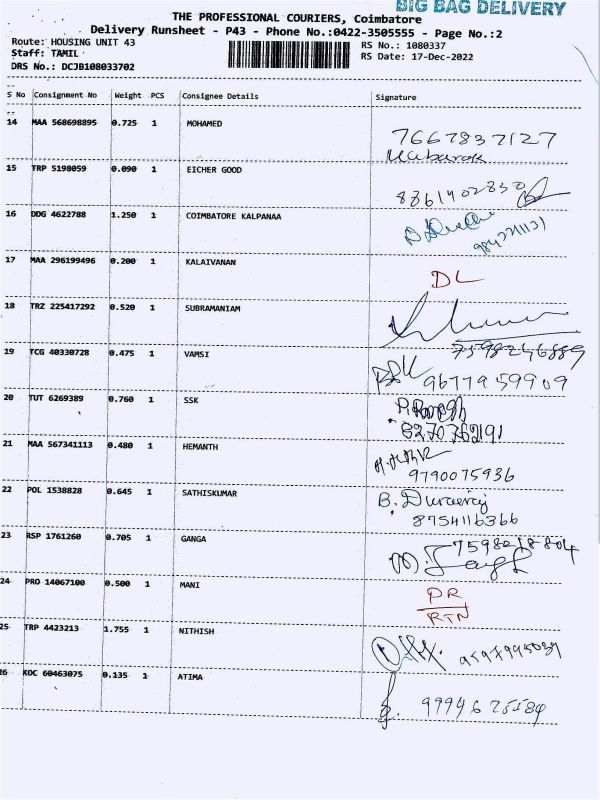 BIG BAG DELIVERY
THE PROFESSIONAL COURIERS, Coimbatore
Delivery Runsheet - P43 - Phone No.:0422-3505555 - Page No.:2
Route: HOUSING UNIT 43 RS No.: 1080337
Staff: TAMIL RS Date: 17-Dec-2022
DRS No.: DCJB108033702
S No Consignment No Weight PCS Consignee Details Signature
14 MAA 568698895 0.725 1 MOHAMED
7667837127
Mubarak
15 TRP 5198059 0.090 1 EICHER GOOD
8861402830
16 DDG 4622788 1.250 1 COIMBATORE KALPANAA
17 MAA 296199496 0.200 1 KALAIVANAN
DL
18 TRZ 225417292 0.520 1 SUBRAMANIAM
7598246889
19 TCG 40330728 0.475 1 VAMSI
9677959909
20 TUT 6269389 0.760 1 SSK
6270762191
21 MAA 567341113 0.480 1 HEMANTH
9790075936
22 POL 1538828 0.645 1 SATHISKUMAR
B. Duraeraj
8754116366
23 RSP 1761260 0.705 1 GANGA
7598218804
24 PRO 14067100 0.500 1 MANI
DR
RTN
25 TRP 4423213 1.755 1 NITHISH
26 KOC 60463075 0.135 1 ATIMA